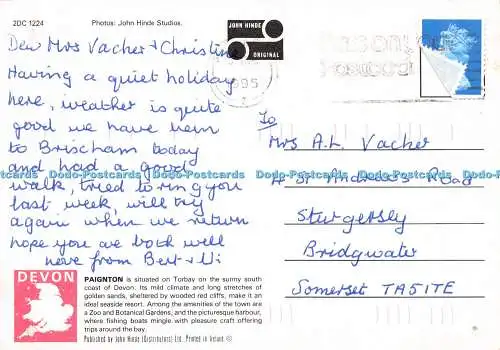 2DC 1224
Photos: John Hinde Studios.
JOHN HINDE
ORIGINAL
Dear Mrs Vacher + Christine
Having a quiet holiday
here, weather is quite
good we have been
to Brixcham today
and had a good
walk, tried to ring you
last week, will try
again when we return
hope you are both well
love from Bert + Vi
1995
To
Mrs A.L. Vacher
St Andrew's Road
Sturgersley
Bridgwater
Somerset TA5 1TE
DEVON
PAIGNTON is situated on Torbay on the sunny south
coast of Devon. Its mild climate and long stretches of
golden sands, sheltered by wooded red cliffs, make it an
ideal seaside resort. Among the amenities of the town are
a Zoo and Botanical Gardens, and the picturesque harbour,
where fishing boats mingle with pleasure craft offering
trips around the bay.
Published by John Hinde (Distributors) Ltd. Printed in Ireland.
Dodo-Postcards Dodo-Postcards Dodo-Postcards Dodo-Postcards